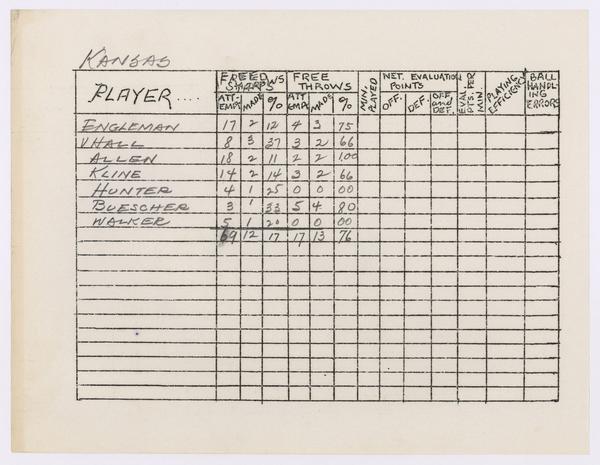 KANSAS
PLAYER....
FREE THROWS
MIN. PLAYED
NET. EVALUATION POINTS
EVAL. PTS. PER MIN
PLAYING EFFICIENCY
BALL HANDL-ING ERRORS
ATT-EMPT. MADE % ATT EMPT. MADE % OFF. DEF. OFF. and DEF.
ENGLEMAN 17 2 12 4 3 75
V HALL 8 3 37 3 2 66
ALLEN 18 2 11 2 2 100
KLINE 14 2 14 3 2 66
HUNTER 4 1 25 0 0 00
BUESCHER 3 1 33 5 4 80
WALKER 5 1 20 0 0 00
69 12 17 17 13 76